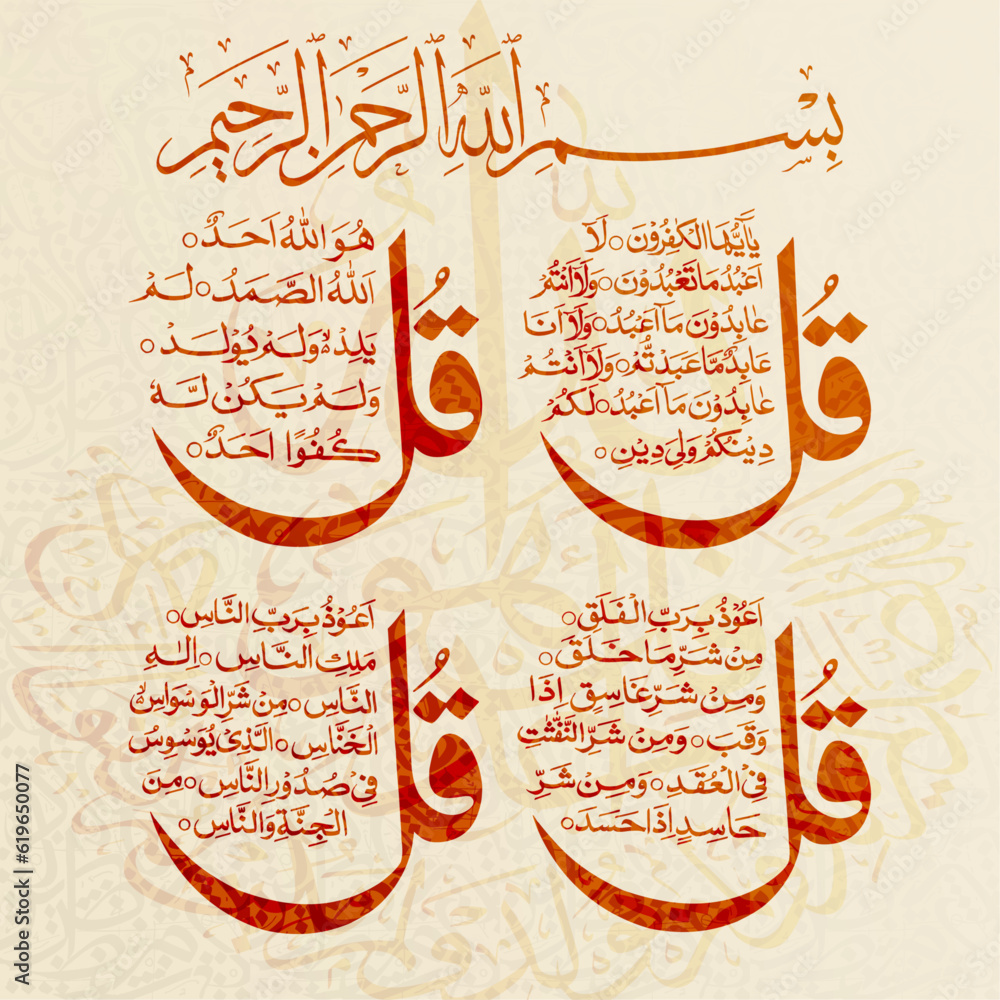 بِسْمِ اللّٰهِ الرَّحْمٰنِ الرَّحِيْمِ
قُلْ
يٰٓاَيُّهَا الْكٰفِرُوْنَ ○ لَآ
اَعْبُدُ مَا تَعْبُدُوْنَ ○ وَلَآ اَنْتُمْ
عٰبِدُوْنَ مَآ اَعْبُدُ ○ وَلَآ اَنَا
عَابِدٌ مَّا عَبَدْتُّمْ ○ وَلَآ اَنْتُمْ
عٰبِدُوْنَ مَآ اَعْبُدُ ○ لَكُمْ
دِيْنُكُمْ وَلِيَ دِيْنِ ○
قُلْ
هُوَ اللّٰهُ اَحَدٌ ○
اَللّٰهُ الصَّمَدُ ○ لَمْ
يَلِدْ ۙ وَلَمْ يُوْلَدْ ○
وَلَمْ يَكُنْ لَّهٗ
كُفُوًا اَحَدٌ ○
قُلْ
اَعُوْذُ بِرَبِّ الْفَلَقِ ○
مِنْ شَرِّ مَا خَلَقَ ○
وَمِنْ شَرِّ غَاسِقٍ اِذَا
وَقَبَ ○ وَمِنْ شَرِّ النَّفّٰثٰتِ
فِي الْعُقَدِ ○ وَمِنْ شَرِّ
حَاسِدٍ اِذَا حَسَدَ ○
قُلْ
اَعُوْذُ بِرَبِّ النَّاسِ ○
مَلِكِ النَّاسِ ○ اِلٰهِ
النَّاسِ ○ مِنْ شَرِّ الْوَسْوَاسِ ۙ
الْخَنَّاسِ ○ الَّذِيْ يُوَسْوِسُ
فِيْ صُدُوْرِ النَّاسِ ○ مِنَ
الْجِنَّةِ وَالنَّاسِ ○
Adobe Stock | #619650077